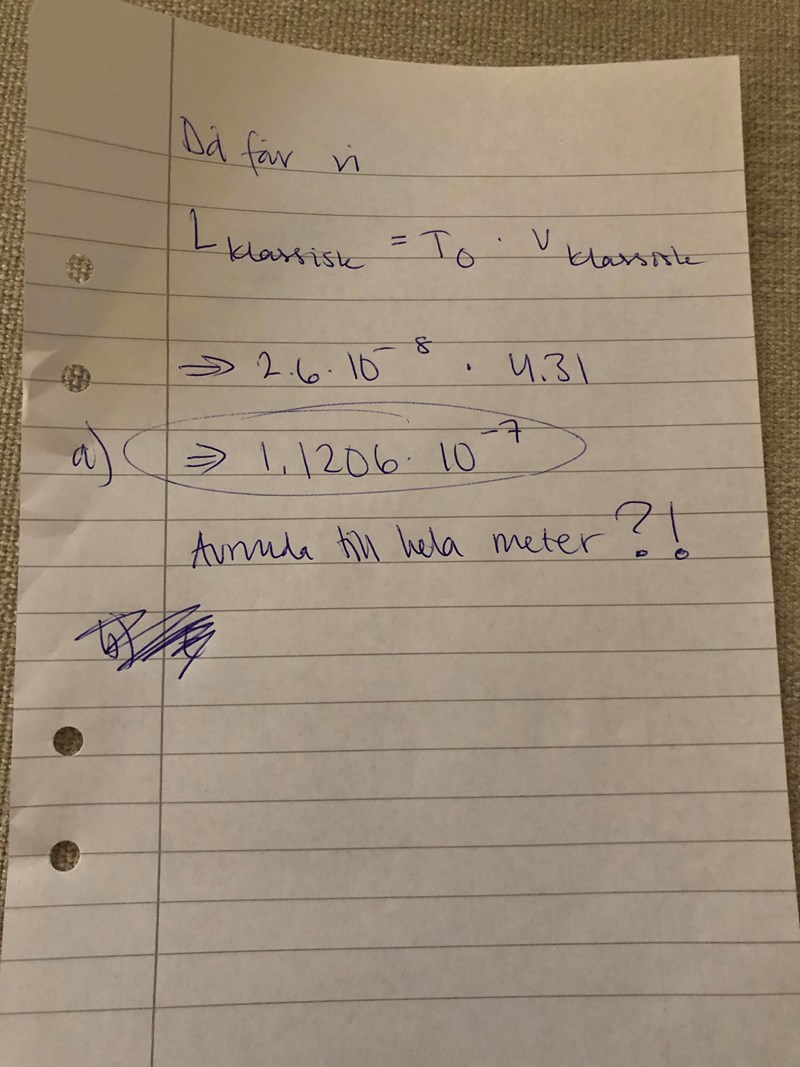 Då får vi
L klassisk = T0 · v klassisk
⇒ 2.6 · 10^-8 · 4.31
a) ⇒ 1.1206 · 10^-7
Avrunda till hela meter?!